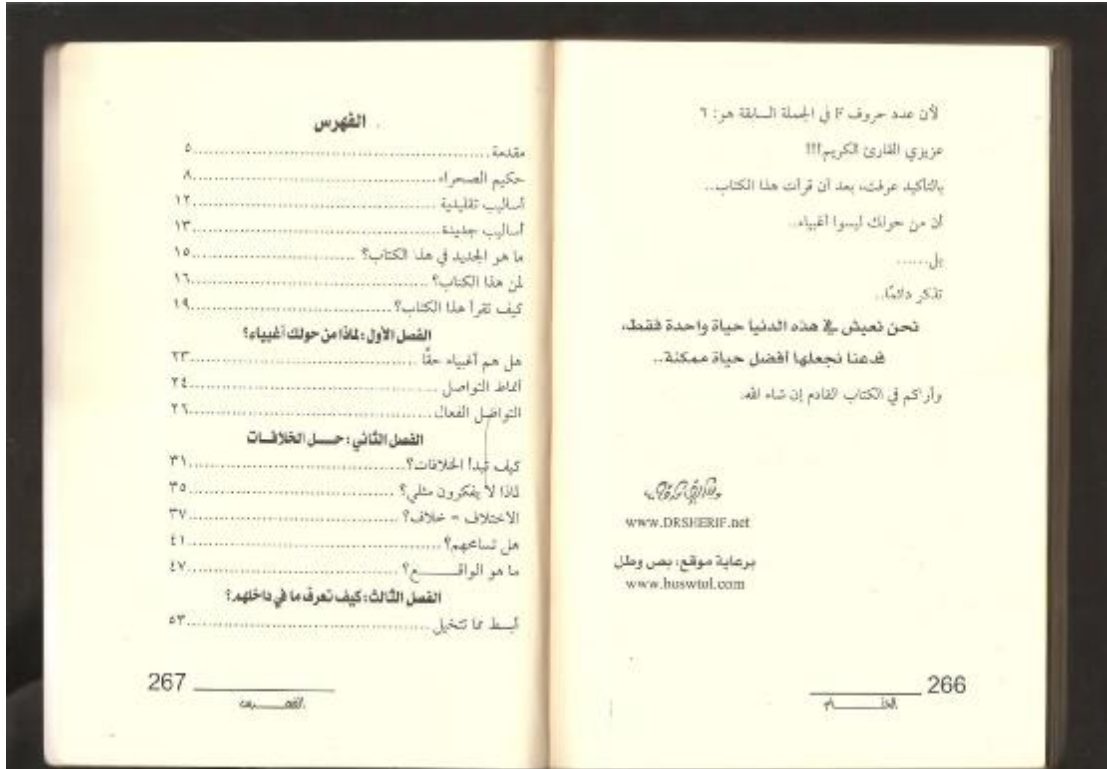 لأن عدد حروف F في الجملة السابقة هو: ٦
عزيزي القارئ الكريم!!!
بالتأكيد عرفت، بعد أن قرأت هذا الكتاب..
أن من حولك ليسوا أغبياء..
بل......
تذكر دائمًا..
نحن نعيش في هذه الدنيا حياة واحدة فقط،
فدعنا نجعلها أفضل حياة ممكنة..
وأراكم في الكتاب القادم إن شاء الله.
www.DRSHERIF.net
برعاية موقع: بص وطل
www.boswtol.com
266
الختـــام
الفهرس
مقدمة ........ ٥
حكيم الصحراء ........ ٨
أساليب تقليدية ........ ١٢
أساليب جديدة ........ ١٣
ما هو الجديد في هذا الكتاب؟ ........ ١٥
لمن هذا الكتاب؟ ........ ١٦
كيف تقرأ هذا الكتاب؟ ........ ١٩
الفصل الأول: لماذا من حولك أغبياء؟
هل هم أغبياء حقًّا ........ ٢٣
أنماط التواصل ........ ٢٤
التواصل الفعال ........ ٢٦
الفصل الثاني: حـــل الخلافـات
كيف تبدأ الخلافات؟ ........ ٣١
لماذا لا يفكرون مثلي؟ ........ ٣٥
الاختلاف = خلاف؟ ........ ٣٧
هل تسامحهم؟ ........ ٤١
ما هو الواقـــــع؟ ........ ٤٧
الفصل الثالث: كيف تعرف ما في داخلهم؟
أبسط مما تتخيل ........ ٥٣
267
الفهـــرس